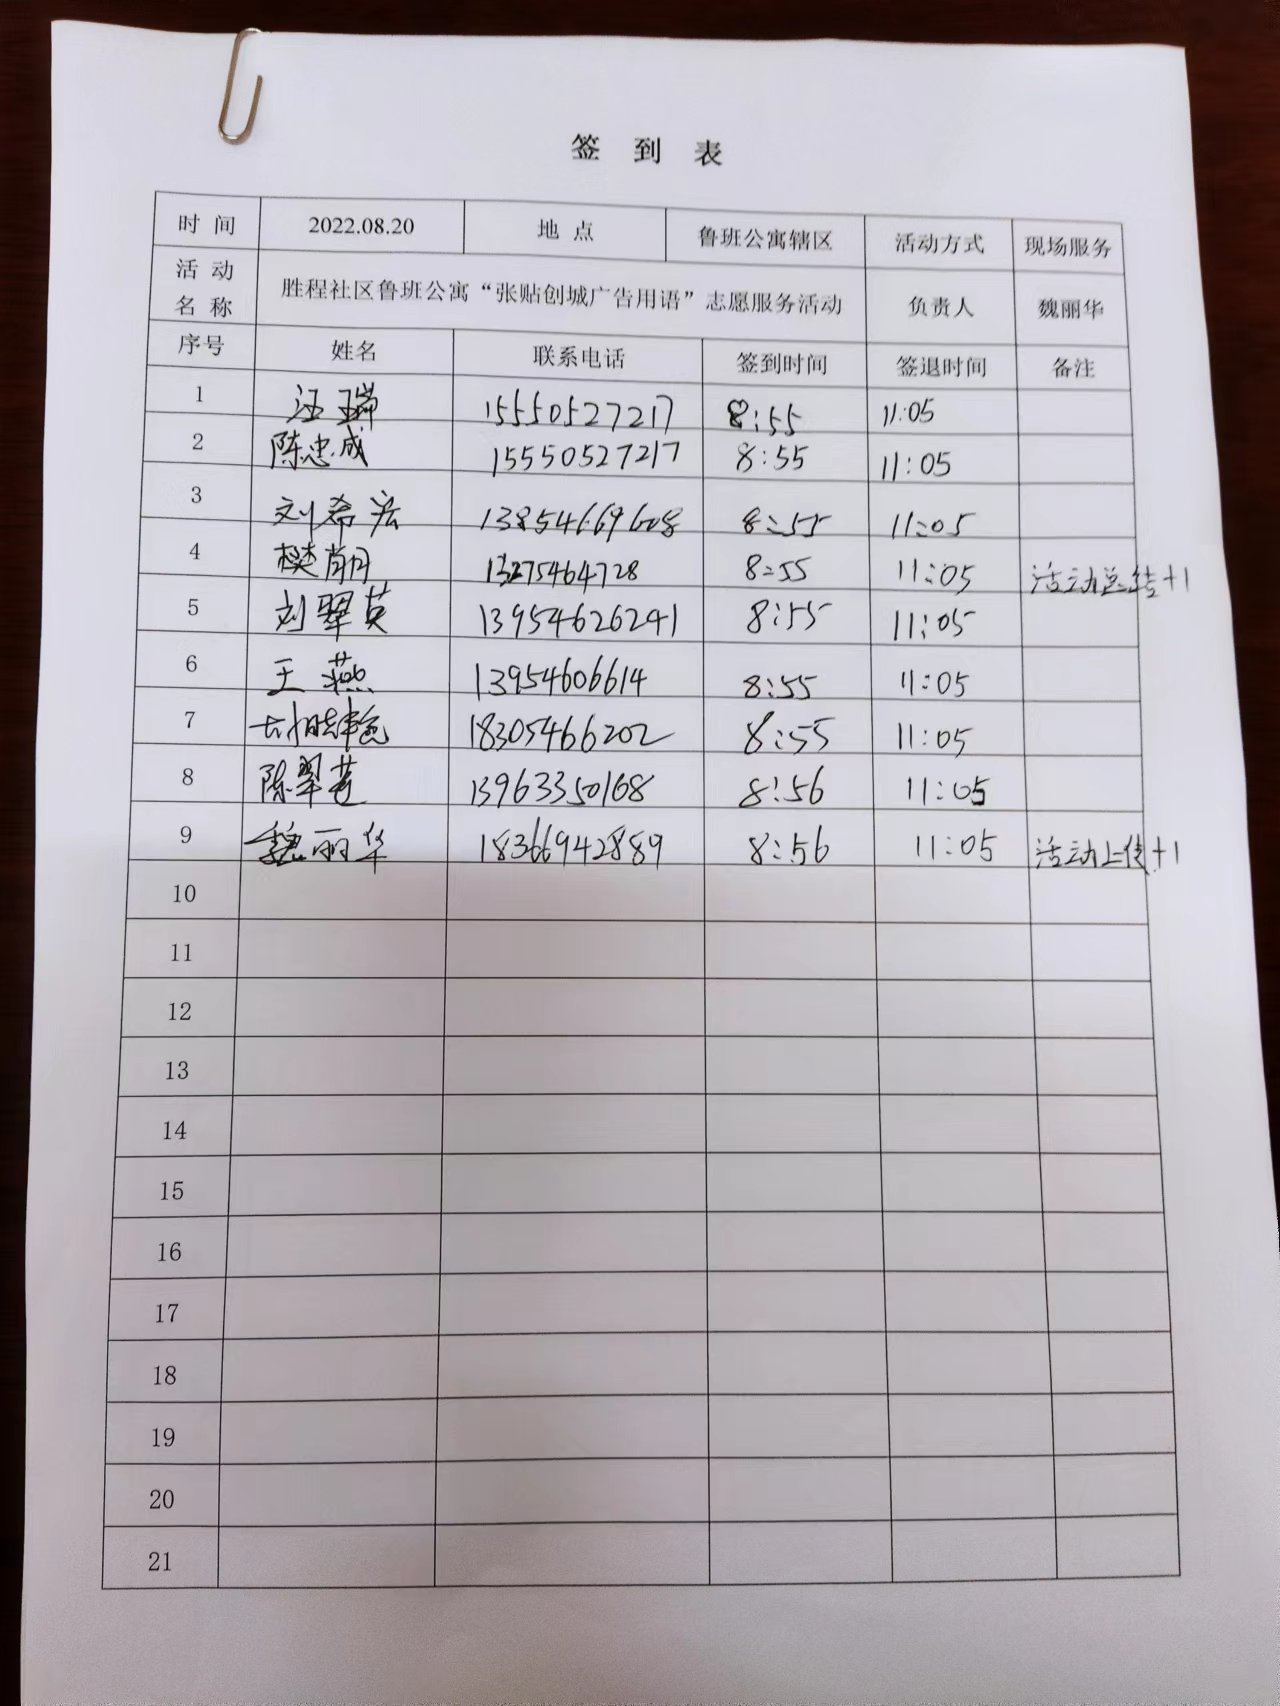 签 到 表
时 间 2022.08.20 地 点 鲁班公寓辖区 活动方式 现场服务
活 动 名 称 胜程社区鲁班公寓“张贴创城广告用语”志愿服务活动 负责人 魏丽华
序号 姓名 联系电话 签到时间 签退时间 备注
1 汪瑞 15550527217 8:55 11:05
2 陈忠成 15550527217 8:55 11:05
3 刘希宏 13854669608 8:55 11:05
4 樊 13275464728 8:55 11:05 活动总结+1
5 刘翠英 13954626241 8:55 11:05
6 王燕 13954606614 8:55 11:05
7 18305466202 8:55 11:05
8 陈翠莲 13963350168 8:56 11:05
9 魏丽华 18366942889 8:56 11:05 活动上传+1
10
11
12
13
14
15
16
17
18
19
20
21